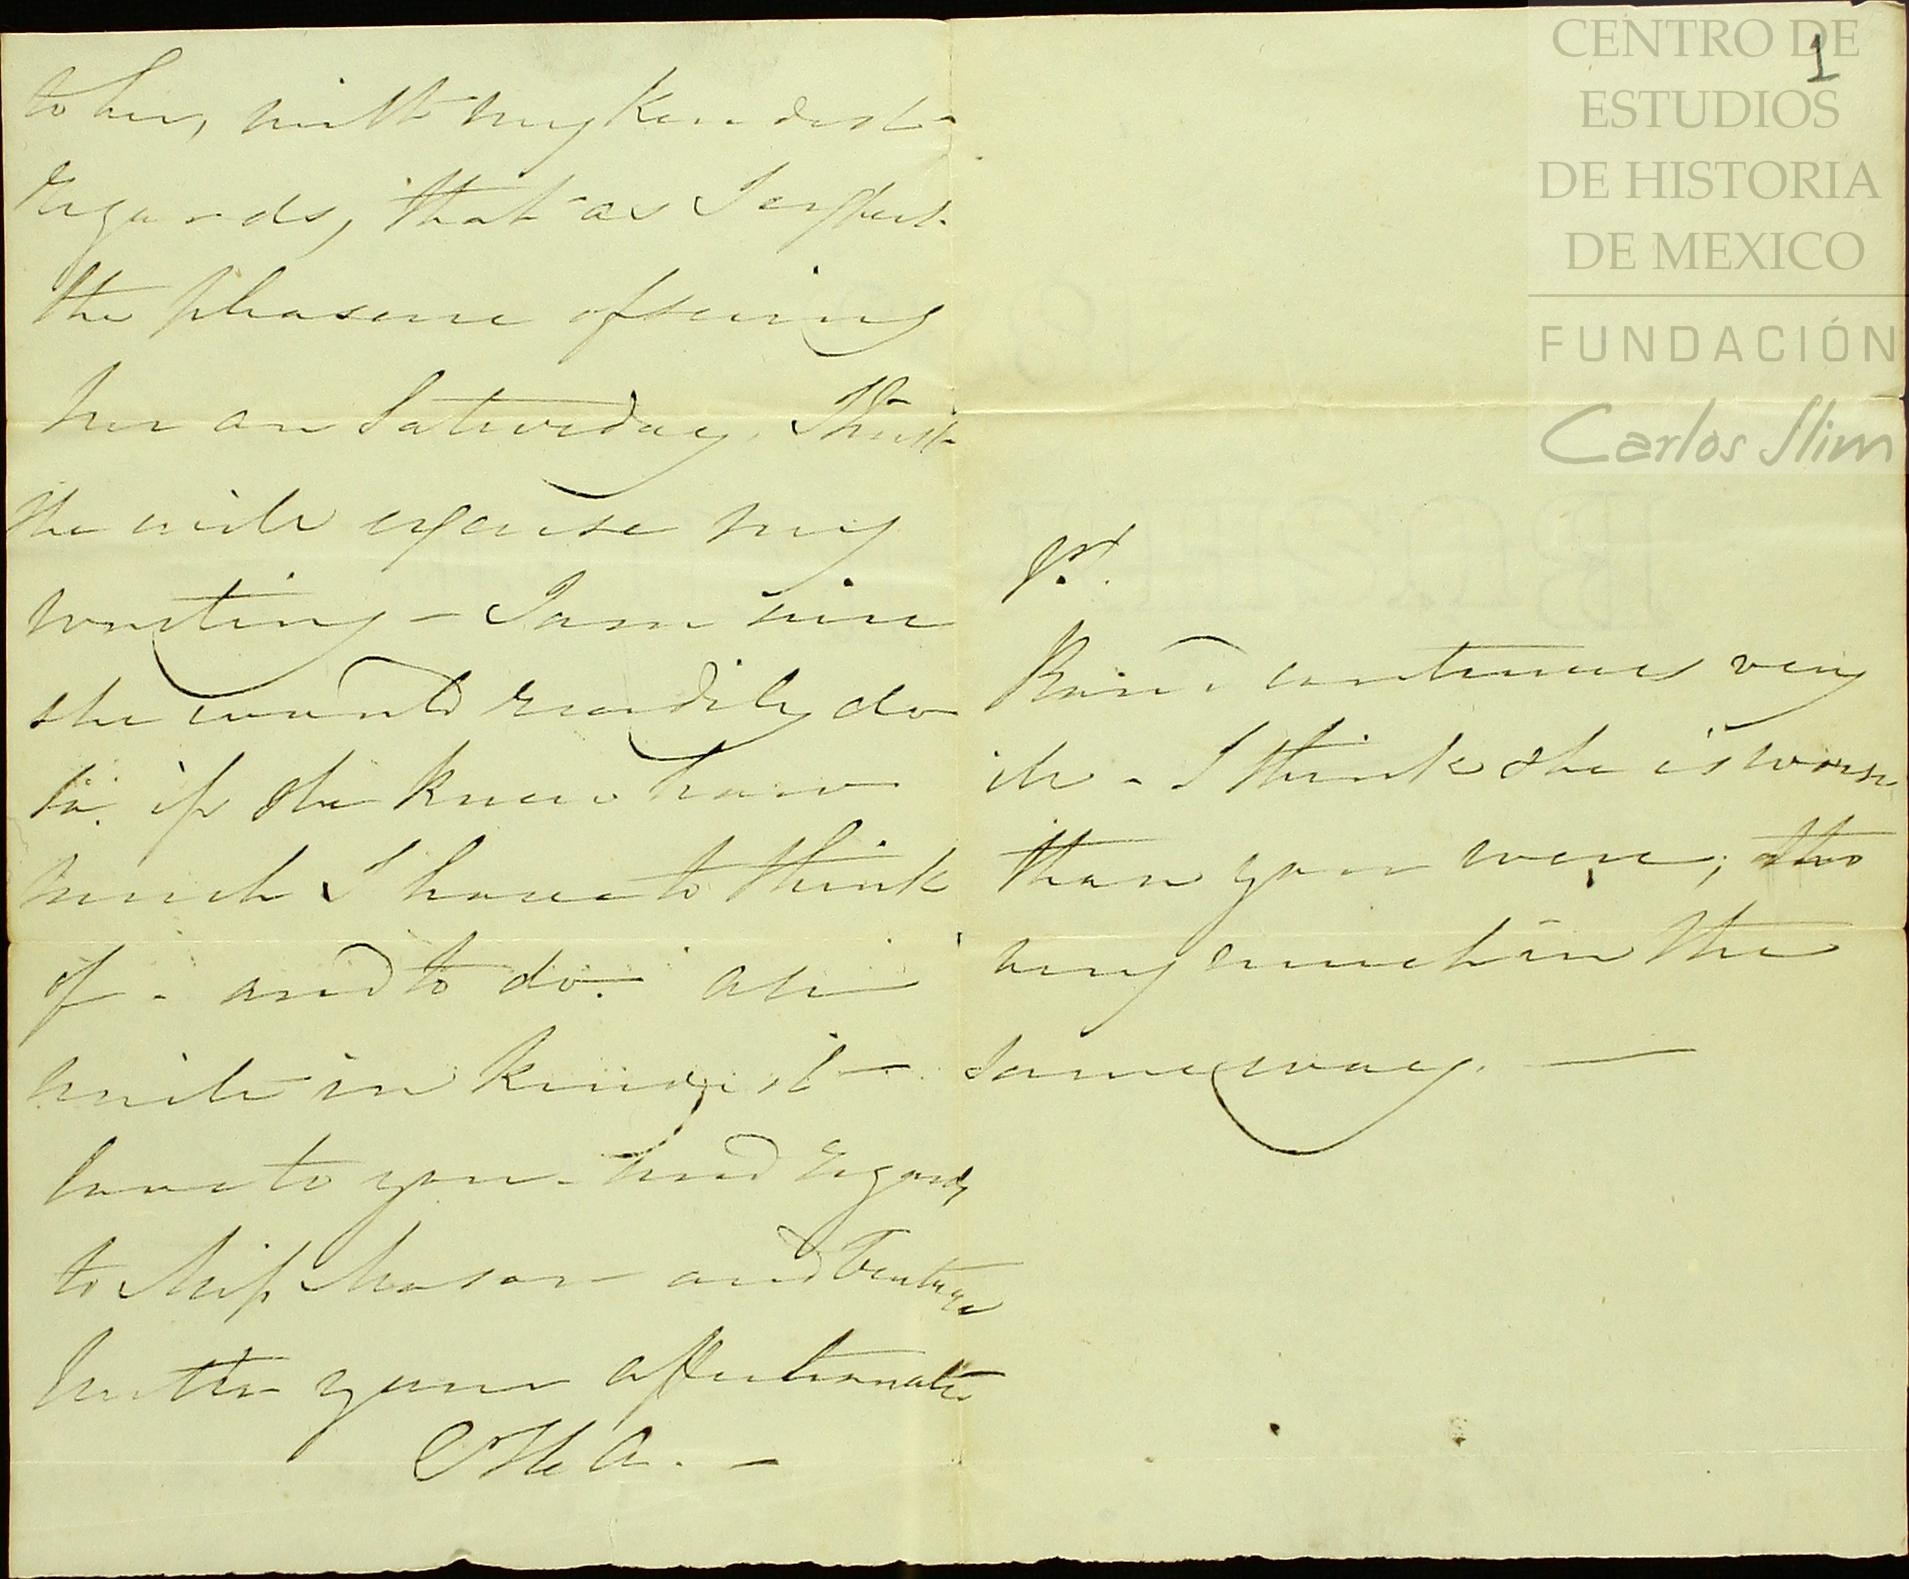 to her, with my kindest
regards, that as I expect
the pleasure of seeing
her on Saturday, I trust
she will excuse my
writing – I am sure
she would readily do
so. if she knew how
much I have to think
of - and to do. All
unite in kindest
love to you - and regards
to Miss Mason and
your affectionate
1
P.S.
continues very
ill - I think she is worse
than you were, tho
very much in the
same way. —
CENTRO DE
ESTUDIOS
DE HISTORIA
DE MEXICO
FUNDACIÓN
Carlos Slim